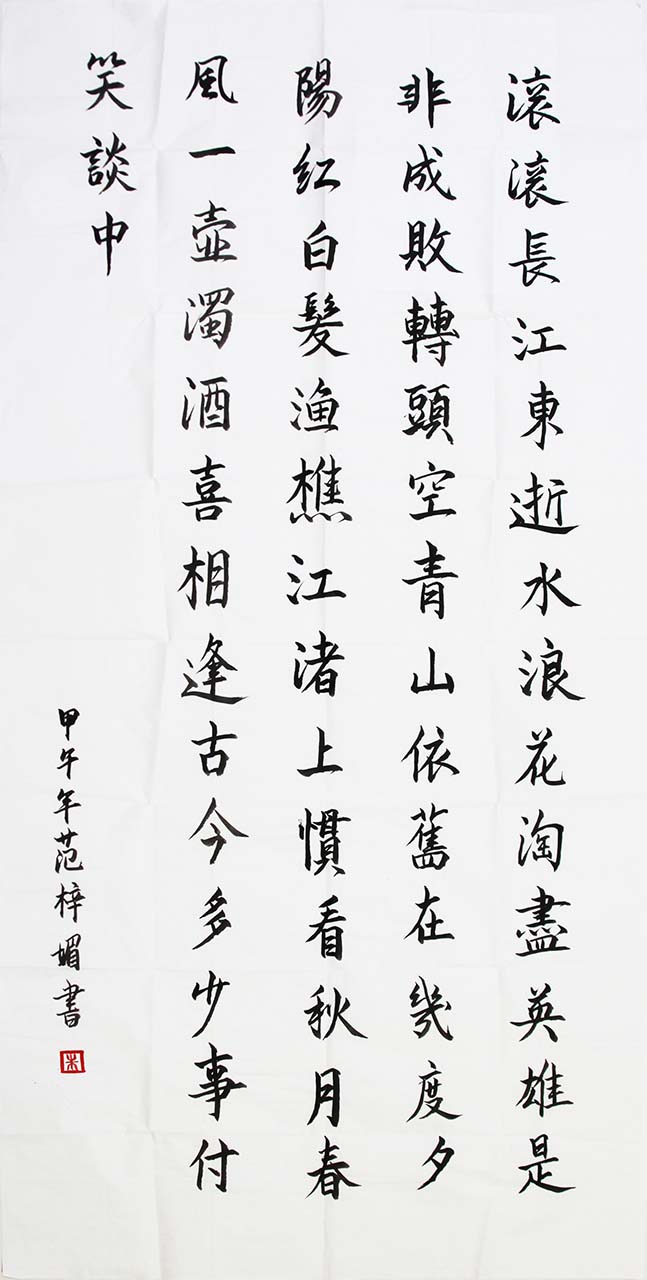 滚滚長江東逝水浪花淘盡英雄是
非成敗轉頭空青山依舊在幾度夕
陽紅白髮漁樵江渚上慣看秋月春
風一壺濁酒喜相逢古今多少事付
笑談中
甲午年范梓媚書